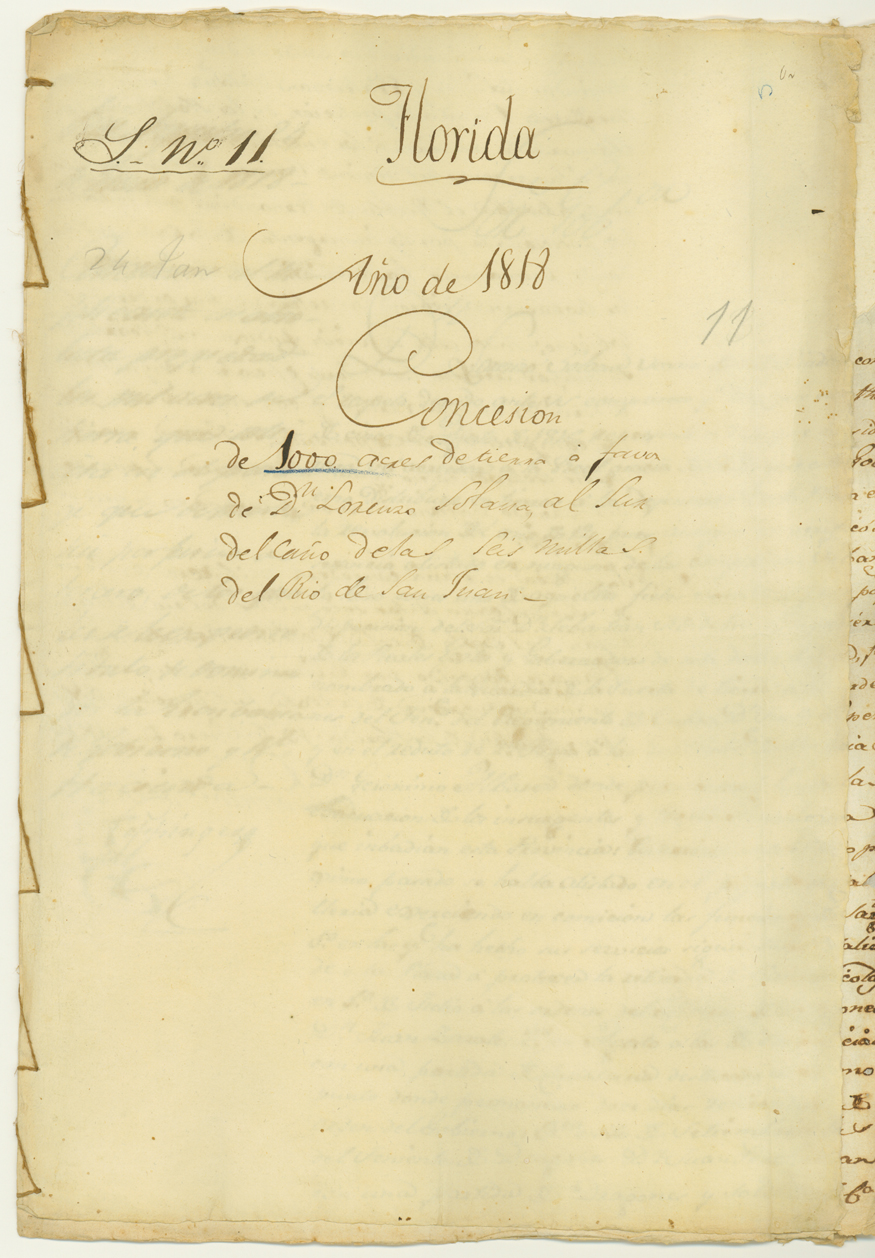 S. nº 11.
Florida
24 Jan
Año de 1818
11
Concesion
de 1000 acres de tierra à favor
de Dn. Lorenzo Solana, al Sur
del Caño de las seis millas.
del Rio de San Juan.